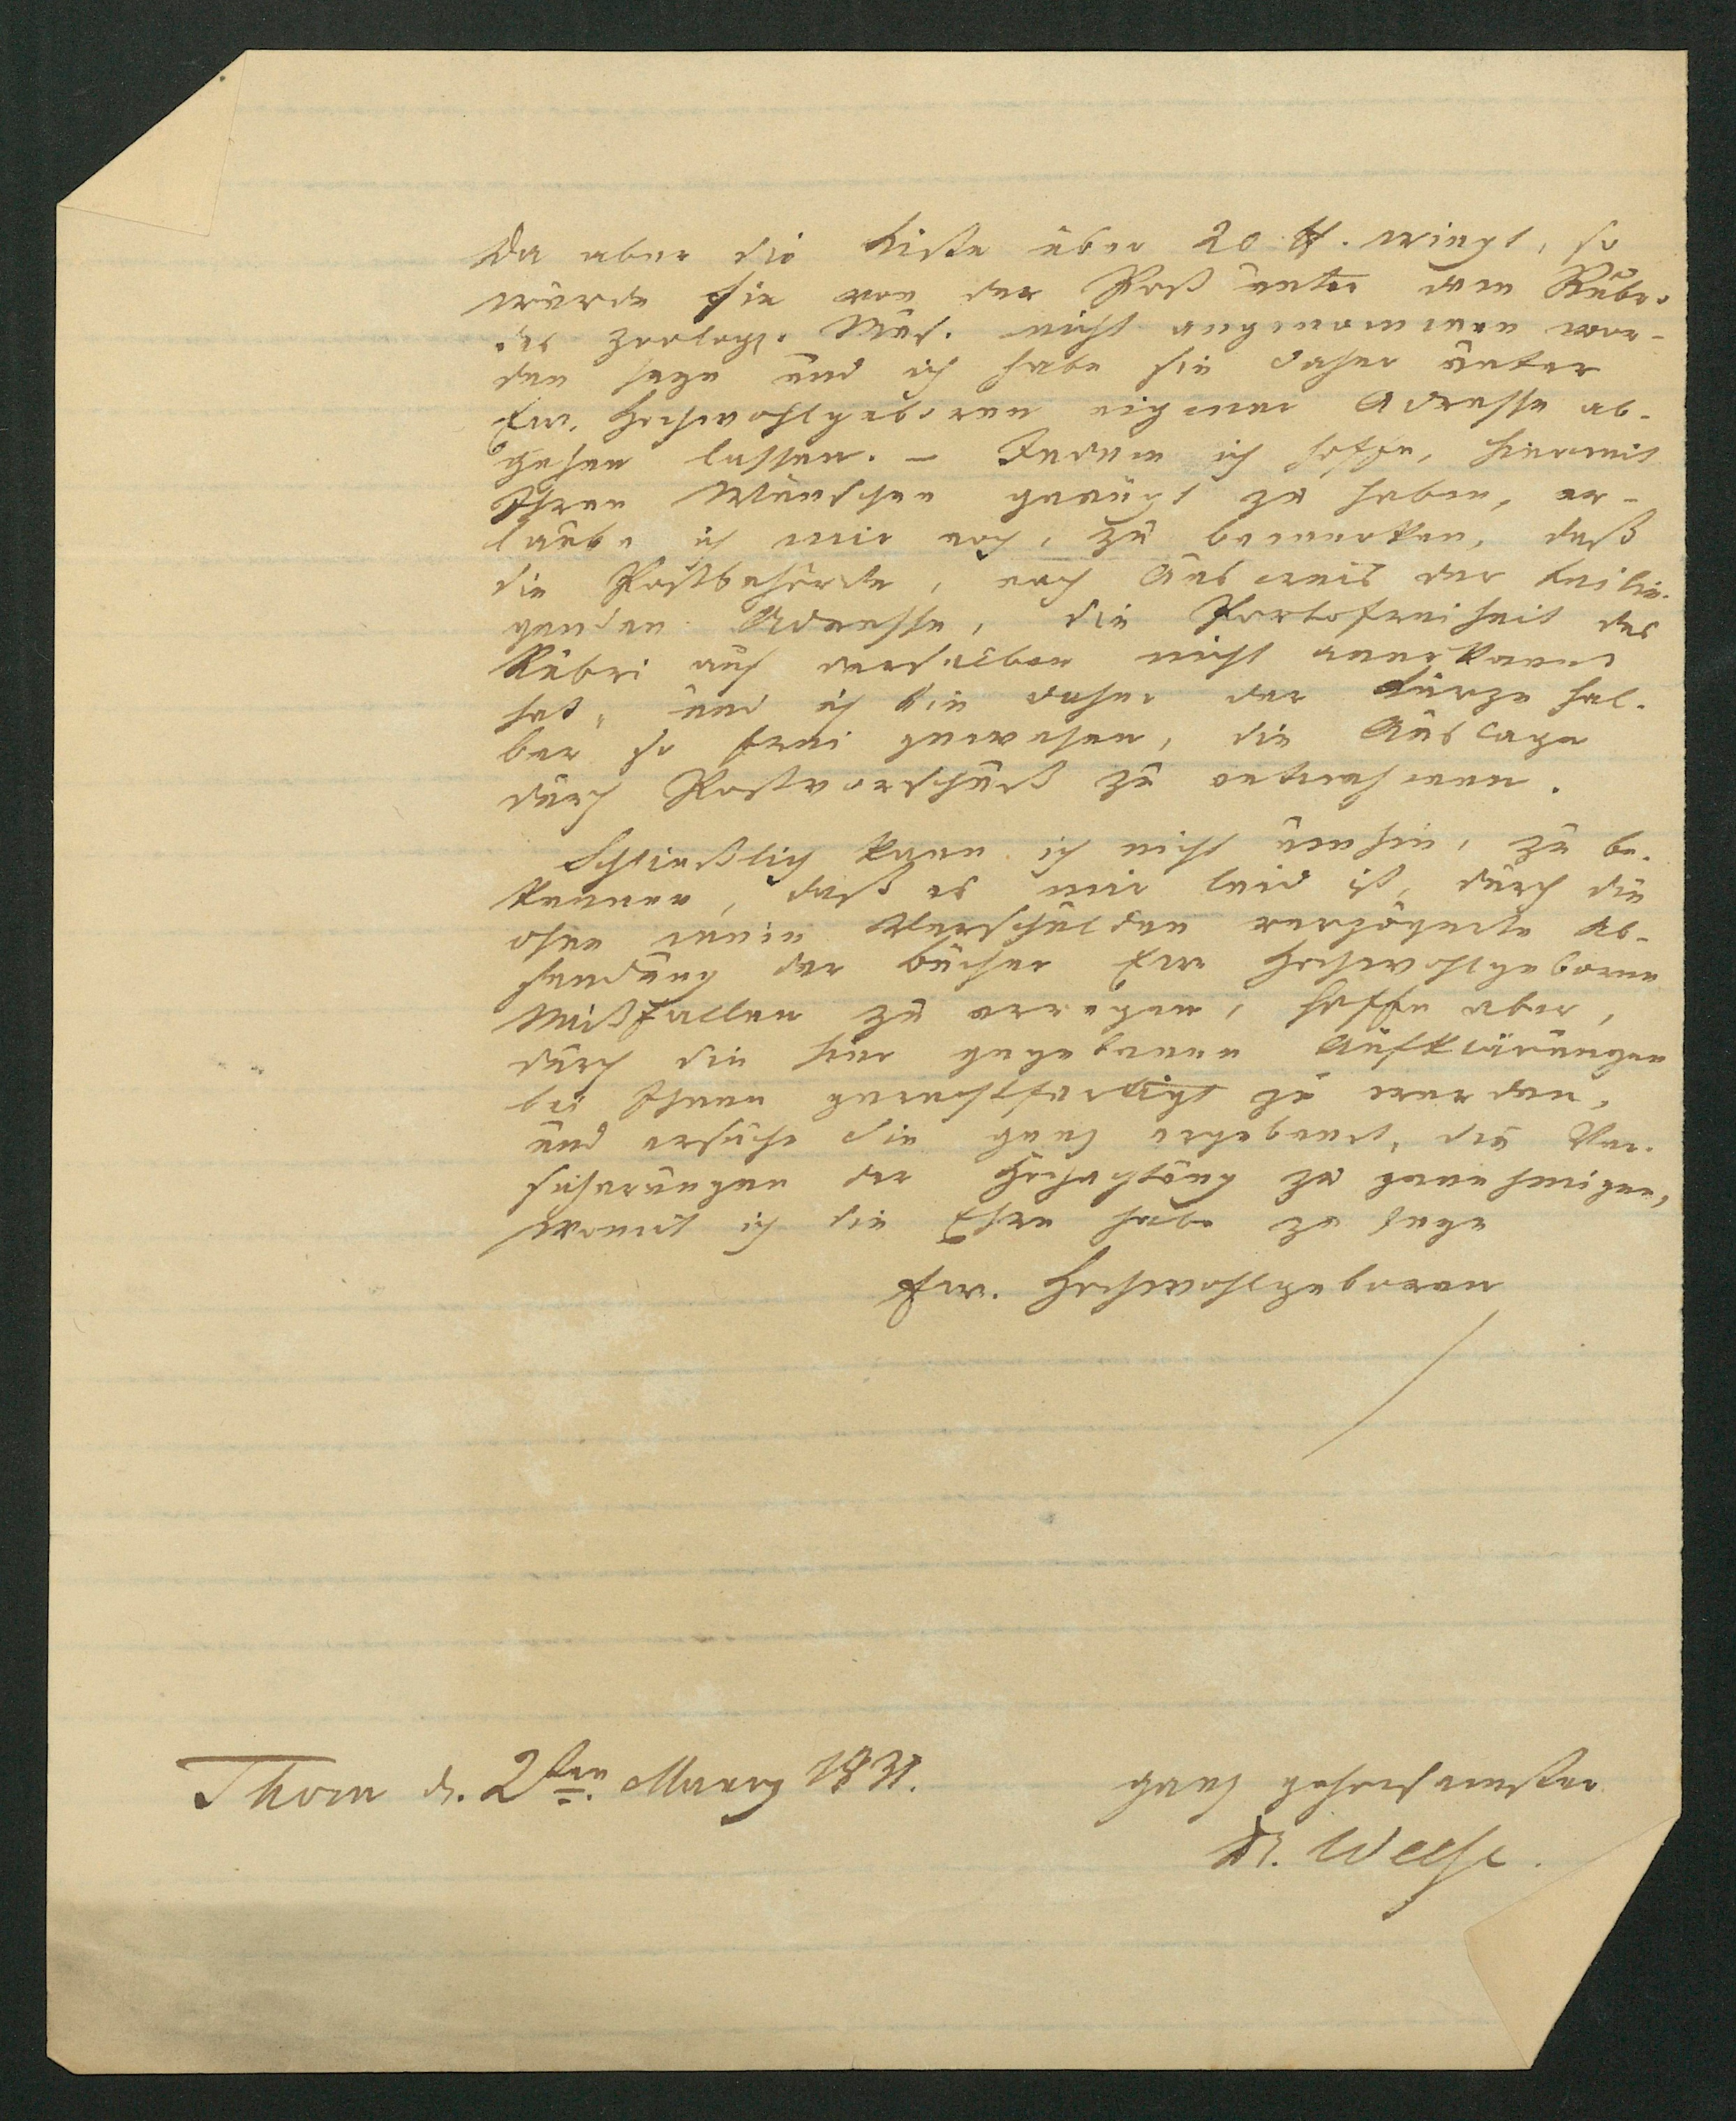 Da aber die Kiste über 20 ℔. wiegt, so
würde sie von der Post unter dem Rubro
des zoolog. Mus. nicht angenommen wor-
den seyn und ich habe sie daher unter
Ew. Hochwohlgeboren eigener Adresse ab-
gehen lassen. – Indem ich hoffe, hiermit
Ihren Wünschen genügt zu haben, er-
laube ich mir noch, zu bemerken, daß
die Postbehörde, nach Ausweis der beilie-
genden Adresse, die Portofreiheit des
Rubri auf derselben nicht anerkannt
hat, und ich bin daher der Kürze hal-
ber so frei gewesen, die Auslage
durch Postvorschuß zu entnehmen.
Schließlich kann ich nicht umhin, zu be-
kennen, daß es mir leid ist, durch die
ohne mein Verschulden verzögerte Ab-
sendung der Bücher Ew Hochwohlgeboren
Mißfallen zu erregen, hoffe aber,
durch die hier gegebenen Aufklärungen
bei Ihnen gerechtfertigt zu werden,
und ersuche Sie ganz ergebenst, die Ver-
sicherungen der Hochachtung zu genehmigen,
womit ich die Ehre habe zu seyn
Ew. Hochwohlgeboren
Thorn d. 2ten Maerz 1831.
ganz gehorsamster
Dr. Weese.